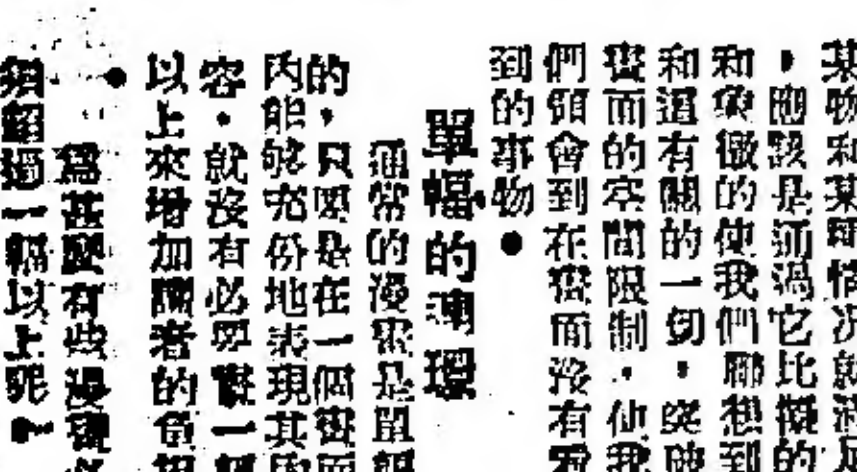 某物和某種情況就滿足
，應該是通過它比擬的
和象徵的使我們聯想到
和這有關的一切，突破
畫面的空間限制，使我
們領會到在畫面沒有看
到的事物。
單幅的連環
通常的漫畫是單幅
的，只要是在一個畫面
內能够充份地表現其內
容，就沒有必要畫一幅
以上來增加讀者的負担
。
爲甚麽有些漫畫必
須超過一幅以上呢？